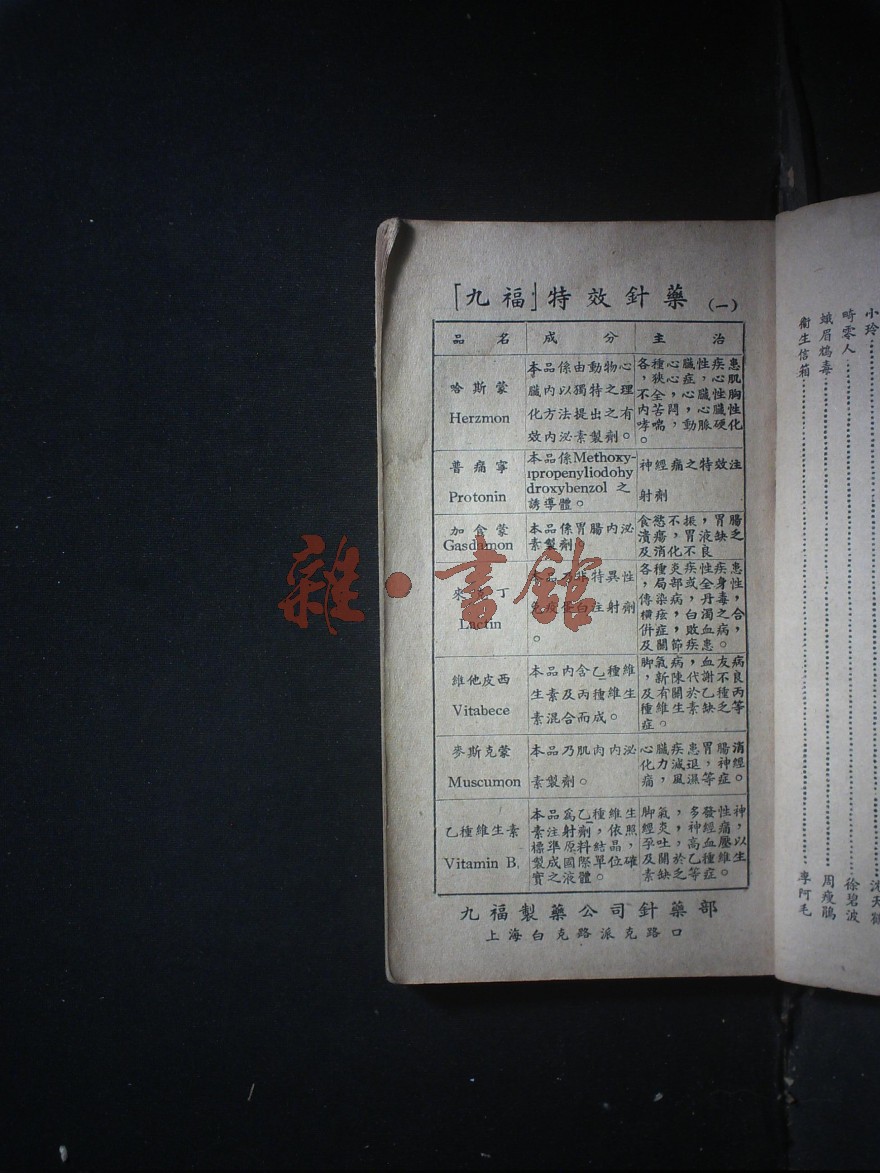 「九福」特效針藥 (一)
品名 成分 主治
哈斯蒙
Herzmon
本品係由動物心
臟內以獨特之理
化方法提出之有
效內泌素製劑。
各種心臟性疾患
，狹心症，心肌
不全，心臟性胸
內苦悶，心臟性
哮喘，動脈硬化
。
普痛寧
Protonin
本品係Methoxy-
ipropenyliodohy
droxybenzol 之
誘導體。
神經痛之特效注
射劑
加含蒙
Gasdamon
本品係胃腸內泌
素製劑
食慾不振，胃腸
潰瘍，胃液缺乏
及消化不良
丁
Lactin
本品乃非特異性
免疫蛋白注射劑
。
各種炎疾性疾患
，局部或全身性
傳染病，丹毒，
橫痃，白濁之合
併症，敗血病，
及關節疾患。
維他皮西
Vitabece
本品內含乙種維
生素及丙種維生
素混合而成。
脚氣病，血友病
，新陳代謝不良
及有關於乙種丙
種維生素缺乏等
症。
麥斯克蒙
Muscumon
本品乃肌肉內泌
素製劑。
心臟疾患胃腸消
化力減退，神經
痛，風濕等症。
乙種維生素
Vitamin B.
本品爲乙種維生
素注射劑，依照
標準原料結晶，
製成國際單位確
實之液體。
脚氣，多發性神
經炎，神經痛，
孕吐，高血壓以
及關於乙種維生
素缺乏等症。
九福製藥公司針藥部
上海白克路派克路口
雜·書館
小玲 沈天鶴
畸零人 徐碧波
蛾眉鴆毒 周瘦鵑
衞生信箱 專阿毛